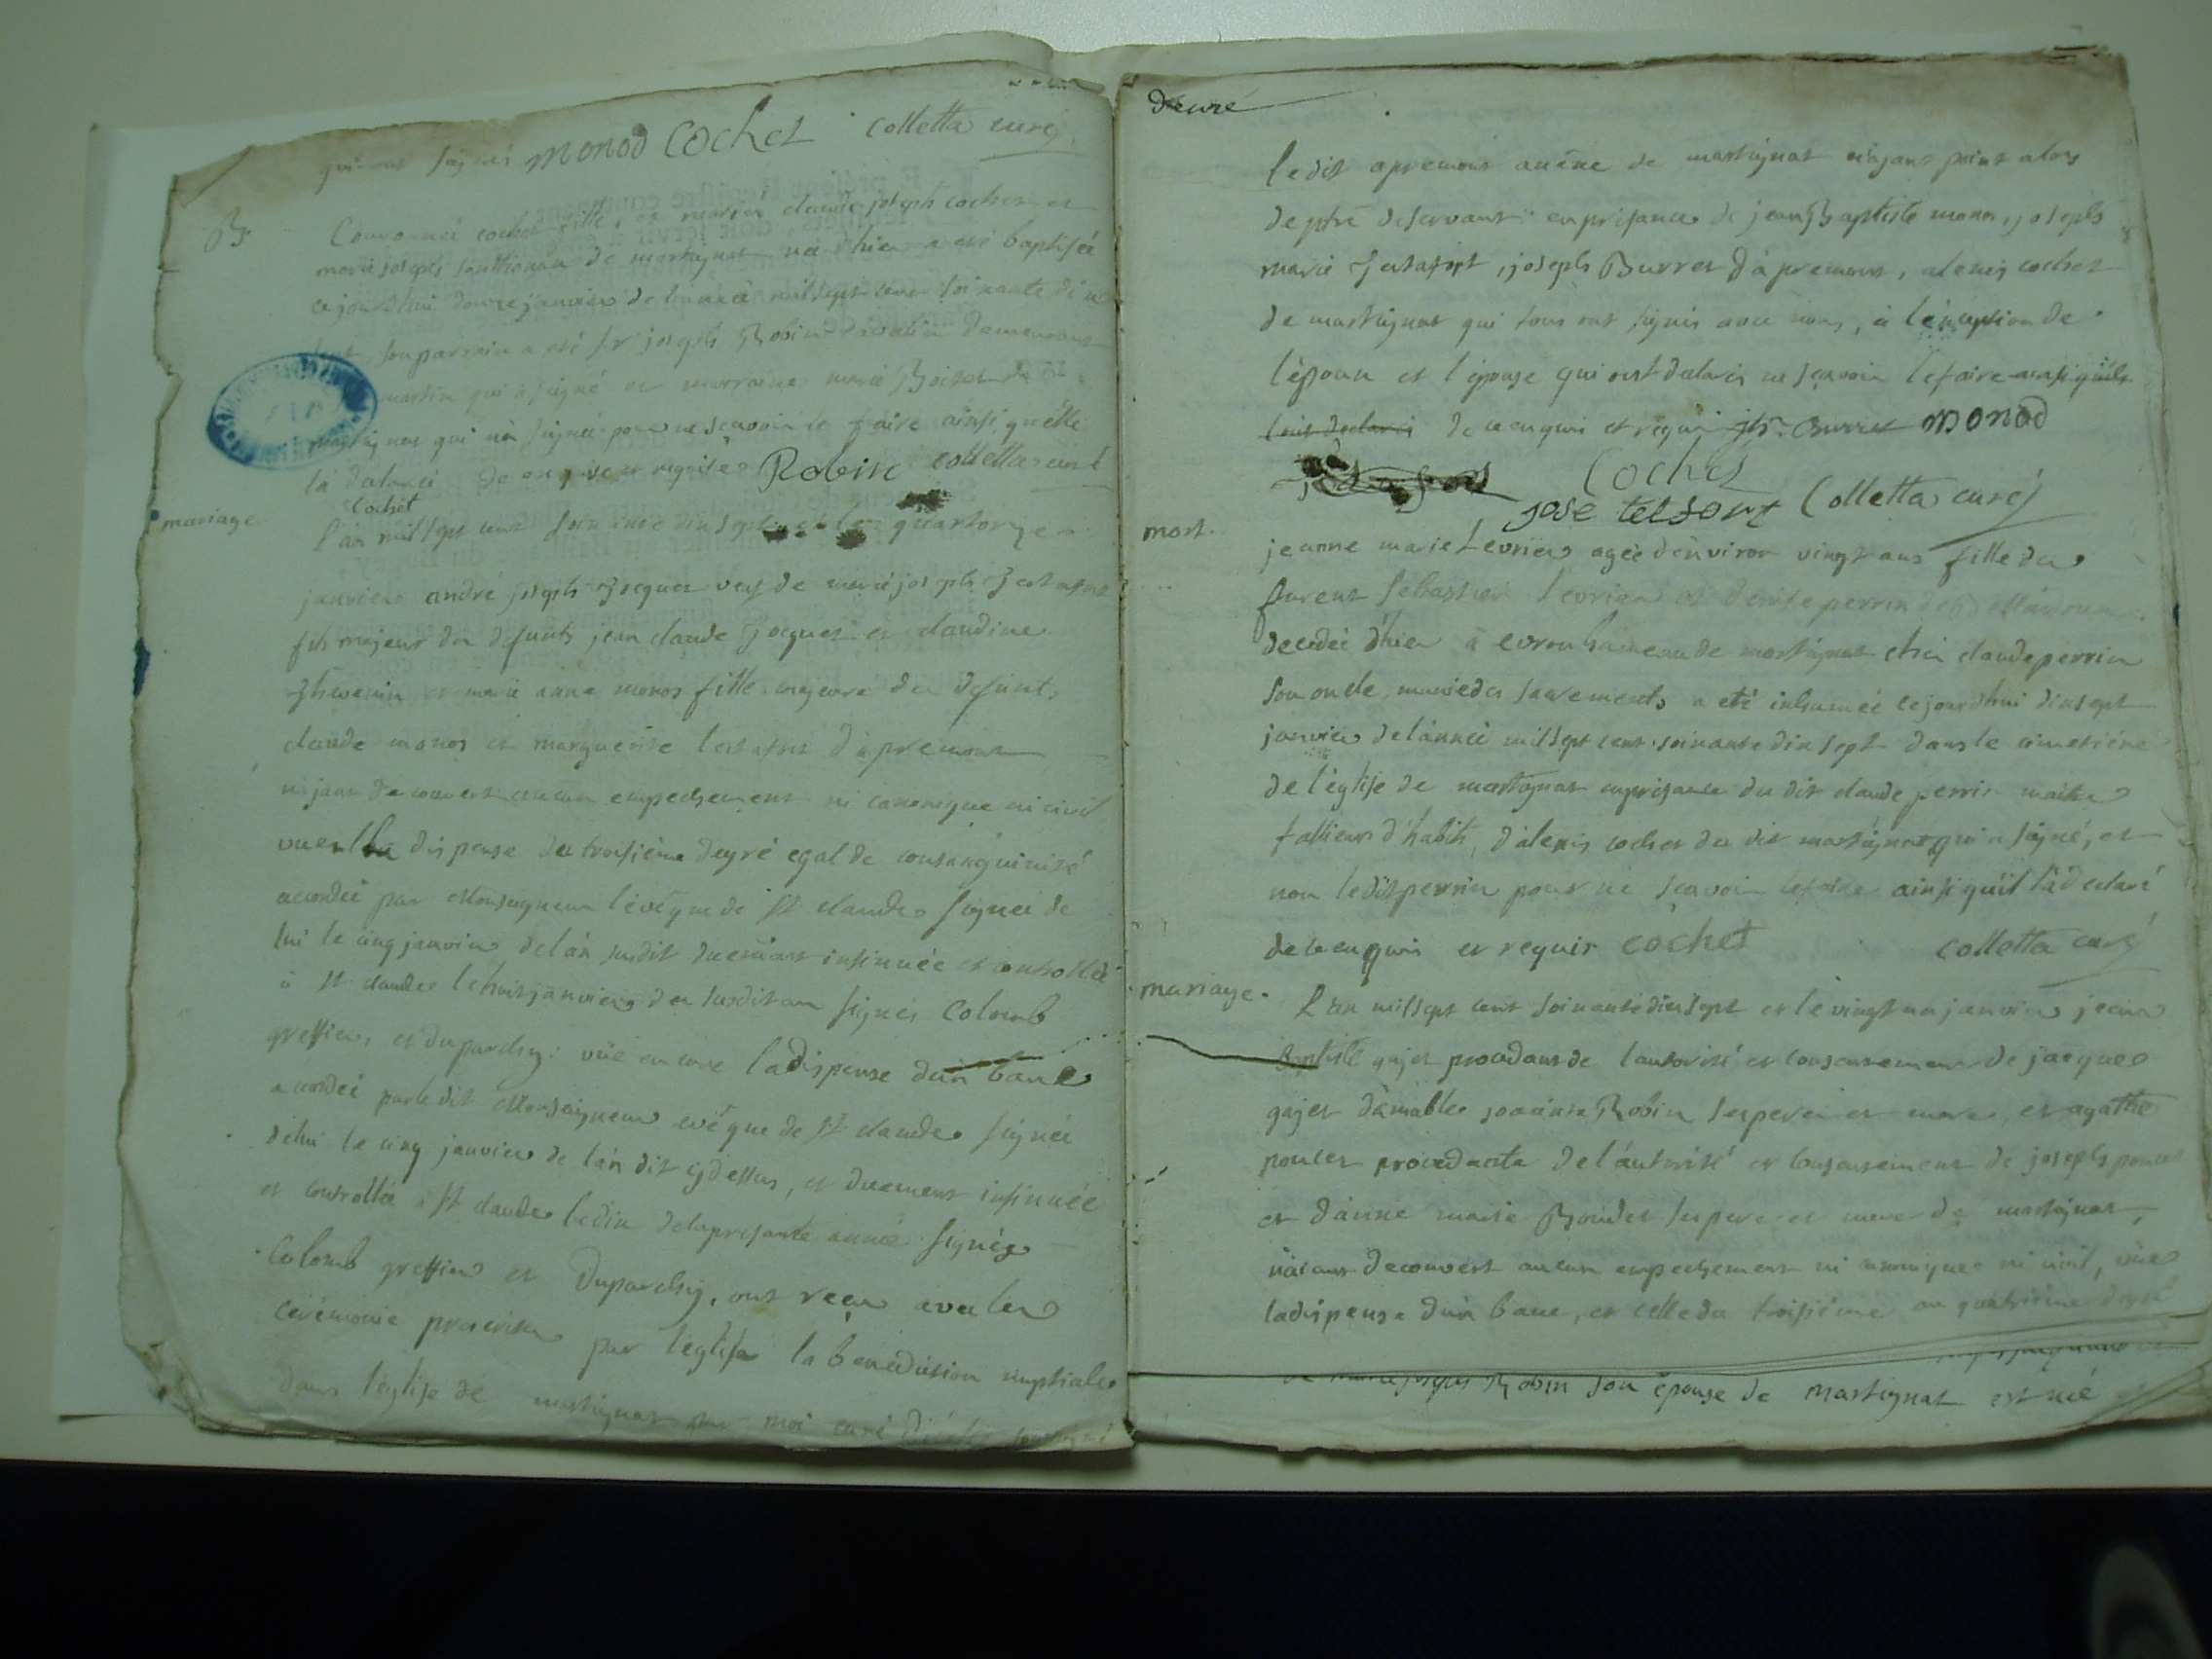 qui ont signés monod Cochet Colletta curé
B.
cochet fille, de claude joseph cochet et
marie joseph de martignat née d'hier a eté baptisée
ce jourdhui douze janvier de l'année mil sept cent soixante dix
son parrain a eté sr joseph Robin demeurant
martin qui a signé et marraine marie Boiset
martignat qui n'a signée pour ne sçavoir le faire ainsi quelle
la declaré de enquise et requise Robin colletta curé
cochet
mariage
l'an mil sept cent soixante dix sept et le quatorze
janvier andré joseph jocquet veuf de marie joseph
fils majeur des defunts jean claude jocquet et claudine
thevenin et marie anne monod fille majeure des defunts
claude monod et marguerite d'apremont
n'ijant decouvert aucun empechement ni canonique ni civil
vue la dispense du troisième degré egal de consanguinité
accordée par Monseigneur l'évêque de St claude signée de
lui le cinq janvier de l'an susdit duement insinuée et controllée
à St claude le huit janvier du susdit an signés Colomb
greffier, et duparchy: vüe encore la dispense d'un banc
accordée par le dit Monseigneur evêque de St claude signée
de lui le cinq janvier de l'an dit cydessus, et duement insinuée
et controllée à St claude le dix de la presente année signés
Colomb greffier et Duparchy, ont reçu avec les
cérémonie prescrites par l'eglise la benediction nuptiale
dans l'église de martignat par moi curé
de curé
le dit apremont annexe de martignat n'ajant point alors
de ptre deservant en presence de jean Baptiste monod, joseph
marie, joseph Burret d'apremont, alexis cochet
de martignat qui tous ont signés avec nous, à l'exception de
l'époux et l'épouse qui ont declarés ne sçavoir le faire ainsi quils
l'ont declarés de ce enquis et requis jh. Burret monod
Cochet
Colletta curé
mort.
jeanne marie Levrier agée d'environ vingt ans fille de
Sebastien Levrier et denise perrin
decedée d'hier à evron hameau de martignat chez claude perrin
son oncle, munie des sacrements a eté inhumée cejourdhui dix sept
janvier de l'année mil sept cent soixante dix sept dans le cimetière
de l'église de martignat en presence du dit claude perrin maitre
tallieur d'habits, d'alexis cochet du dit martignat qui a signé, et
non le dit perrin pour ne sçavoir le faire ainsi qu'il l'a declaré
de ce enquis et requis cochet colletta curé
mariage.
L'an mil sept cent soixante dix sept et le vingt un janvier jean
Baptiste gajet procedant de l'autorité et consentement de jacques
gajet d'aimable Robin ses pere et mere, et agathe
poncet procedante de l'autorité et consentement de joseph poncet
et d'anne marie Bondet ses pere et mere de martignat,
n'aiant decouvert aucun empechement ni canonique ni civil, vüe
la dispense d'un banc, et celle du troisième au quatrième degré
de marie joseph Robin son épouse de martignat est né